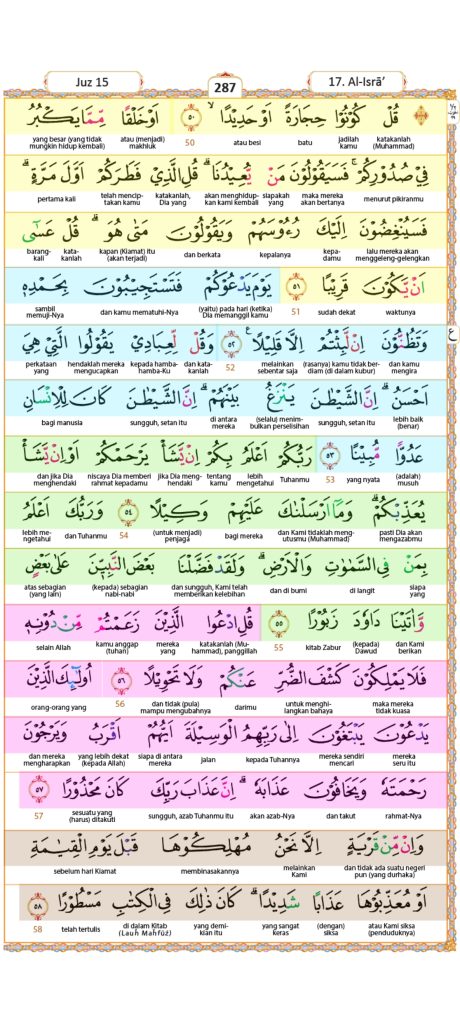 Juz 15
287
17. Al-Isrā’
۞ قُلْ كُوْنُوْا حِجَارَةً اَوْ حَدِيْدًاۙ ٥٠ اَوْ خَلْقًا مِّمَّا يَكْبُرُ
katakanlah (Muhammad) jadilah kamu batu atau besi 50 atau (menjadi) makhluk yang besar (yang tidak mungkin hidup kembali)
فِيْ صُدُوْرِكُمْ ۚ فَسَيَقُوْلُوْنَ مَنْ يُّعِيْدُنَا ۗ قُلِ الَّذِيْ فَطَرَكُمْ اَوَّلَ مَرَّةٍ ۚ
menurut pikiranmu maka mereka akan bertanya siapakah yang akan menghidupkan kami kembali katakanlah, Dia yang telah menciptakan kamu pertama kali
فَسَيُنْغِضُوْنَ اِلَيْكَ رُءُوْسَهُمْ وَيَقُوْلُوْنَ مَتٰى هُوَ ۗ قُلْ عَسٰٓى
lalu mereka akan menggeleng-gelengkan kepadamu kepalanya dan berkata kapan (Kiamat) itu (akan terjadi) katakanlah barangkali
اَنْ يَّكُوْنَ قَرِيْبًا ٥١ يَوْمَ يَدْعُوْكُمْ فَتَسْتَجِيْبُوْنَ بِحَمْدِهٖ
waktunya sudah dekat 51 (yaitu) pada hari (ketika) Dia memanggil kamu dan kamu mematuhi-Nya sambil memuji-Nya
وَتَظُنُّوْنَ اِنْ لَّبِثْتُمْ اِلَّا قَلِيْلًا ࣖ ٥٢ وَقُلْ لِّعِبَادِيْ يَقُوْلُوا الَّتِيْ هِيَ
dan kamu mengira (rasanya) kamu tidak berdiam (di dalam kubur) melainkan sebentar saja 52 dan katakanlah kepada hamba-hamba-Ku hendaklah mereka mengucapkan perkataan yang
اَحْسَنُ ۗ اِنَّ الشَّيْطٰنَ يَنْزَغُ بَيْنَهُمْ ۗ اِنَّ الشَّيْطٰنَ كَانَ لِلْاِنْسَانِ
lebih baik (benar) sungguh, setan itu (selalu) menimbulkan perselisihan di antara mereka sungguh, setan itu bagi manusia
عَدُوًّا مُّبِيْنًا ٥٣ رَبُّكُمْ اَعْلَمُ بِكُمْ اِنْ يَّشَأْ يَرْحَمْكُمْ اَوْ اِنْ يَّشَأْ
(adalah) musuh yang nyata 53 Tuhanmu lebih mengetahui tentang kamu jika Dia menghendaki niscaya Dia memberi rahmat kepadamu dan jika Dia menghendaki
يُعَذِّبْكُمْ ۗ وَمَآ اَرْسَلْنٰكَ عَلَيْهِمْ وَكِيْلًا ٥٤ وَرَبُّكَ اَعْلَمُ
pasti Dia akan mengazabmu dan Kami tidaklah mengutusmu (Muhammad) bagi mereka (untuk menjadi) penjaga 54 dan Tuhanmu lebih mengetahui
بِمَنْ فِى السَّمٰوٰتِ وَالْاَرْضِ ۗ وَلَقَدْ فَضَّلْنَا بَعْضَ النَّبِيّٖنَ عَلٰى بَعْضٍ
siapa yang di langit dan di bumi dan sungguh, Kami telah memberikan kelebihan (kepada) sebagian nabi-nabi atas sebagian (yang lain)
وَّاٰتَيْنَا دَاوٗدَ زَبُوْرًا ٥٥ قُلِ ادْعُوا الَّذِيْنَ زَعَمْتُمْ مِّنْ دُوْنِهٖ
dan Kami berikan (kepada) Dawud kitab Zabur 55 katakanlah (Muhammad), panggillah mereka yang kamu anggap (tuhan) selain Allah
فَلَا يَمْلِكُوْنَ كَشْفَ الضُّرِّ عَنْكُمْ وَلَا تَحْوِيْلًا ٥٦ اُولٰۤىِٕكَ الَّذِيْنَ
maka mereka tidak kuasa untuk menghilangkan bahaya darimu dan tidak (pula) mampu mengubahnya 56 orang-orang yang
يَدْعُوْنَ يَبْتَغُوْنَ اِلٰى رَبِّهِمُ الْوَسِيْلَةَ اَيُّهُمْ اَقْرَبُ وَيَرْجُوْنَ
mereka seru itu mereka sendiri mencari kepada Tuhannya jalan siapa di antara mereka yang lebih dekat (kepada Allah) dan mereka mengharapkan
رَحْمَتَهٗ وَيَخَافُوْنَ عَذَابَهٗ ۗ اِنَّ عَذَابَ رَبِّكَ كَانَ مَحْذُوْرًا ٥٧
rahmat-Nya dan takut akan azab-Nya sungguh, azab Tuhanmu itu sesuatu yang (harus) ditakuti 57
وَاِنْ مِّنْ قَرْيَةٍ اِلَّا نَحْنُ مُهْلِكُوْهَا قَبْلَ يَوْمِ الْقِيٰمَةِ
dan tidak ada suatu negeri pun (yang durhaka) melainkan Kami membinasakannya sebelum hari Kiamat
اَوْ مُعَذِّبُوْهَا عَذَابًا شَدِيْدًا ۗ كَانَ ذٰلِكَ فِى الْكِتٰبِ مَسْطُوْرًا ٥٨
atau Kami siksa (penduduknya) (dengan) siksa yang sangat keras yang demikian itu di dalam Kitab (Lauḥ Maḥfūẓ) telah tertulis 58